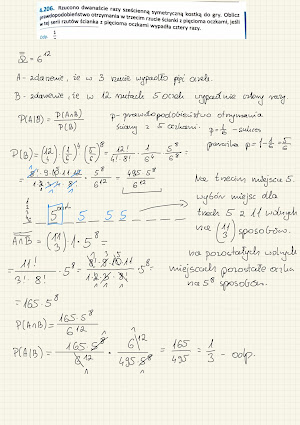 6.206. Rzucono dwanaście razy sześcienną symetryczną kostką do gry. Oblicz
prawdopodobieństwo otrzymania w trzecim rzucie ścianki z pięcioma oczkami, jeśli
w tej serii rzutów ścianka z pięcioma oczkami wypadła cztery razy.
Odp. 1/3
Ω̿ = 6^12
A - zdarzenie, że w 3 rzucie wypadło pięć oczek.
B - zdarzenie, że w 12 rzutach 5 oczek wypadnie cztery razy.
P(A|B) = P(A∩B)/P(B) p - prawdopodobieństwo otrzymania
ściany z 5 oczkami. p = 1/6 - sukces
porażka p = 1 - 1/6 = 5/6
P(B) = (12 4) (1/6)^4 (5/6)^8 = 12!/(4!·8!) · 1/6^4 · 5^8/6^8 =
= 8!·9·10·11·12/(1·2·3·4·8!) · 5^8/6^12 = 495·5^8/6^12
Na trzecim miejscu 5.
wybór miejsc dla
5 _ _ 5 5 _
trzech 5 z 11 wolnych
na (11 3) sposobów.
A∩B = (11 3) · 1 · 5^8 =
na pozostałych wolnych
miejscach pozostałe oczka
na 5^8 sposobów.
= 11!/(3!·8!) · 5^8 = 8!·9·10·11/(1·2·3·8!) · 5^8 =
= 165·5^8
P(A∩B) = 165·5^8/6^12
P(A|B) = 165·5^8/6^12 · 6^12/(495·5^8) = 165/495 = 1/3 - odp.